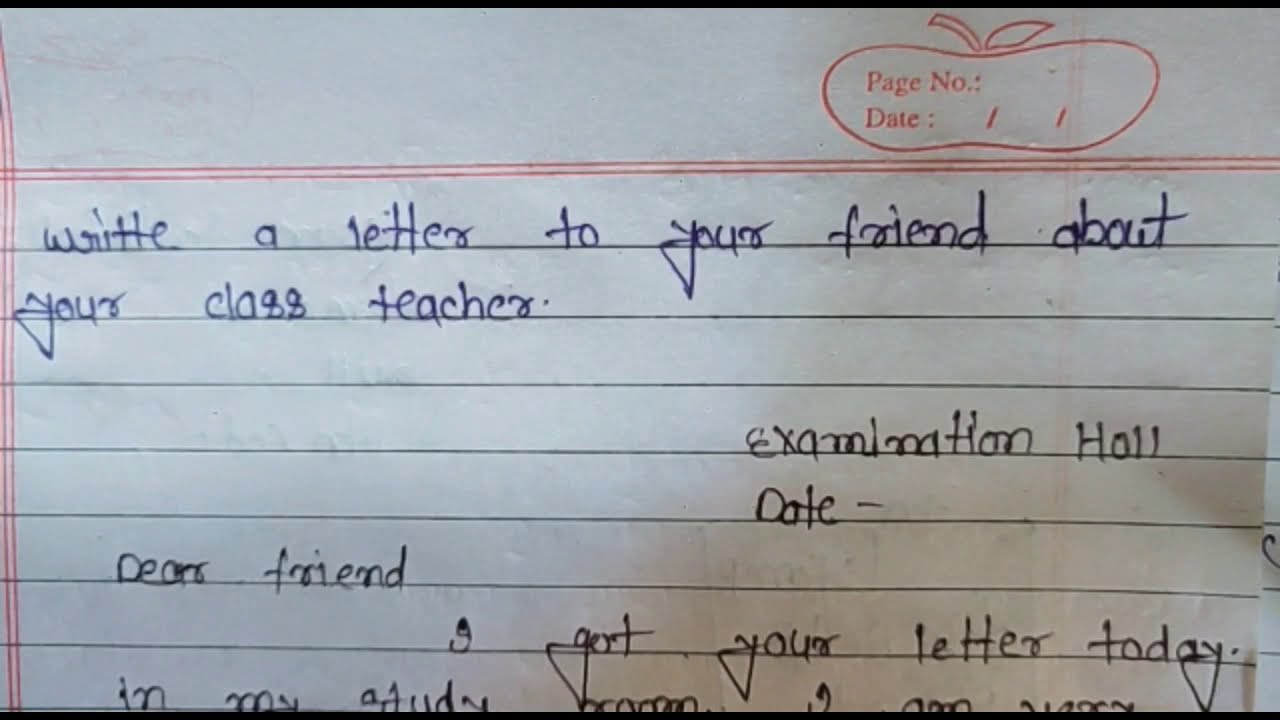 Page No.:
Date : / /
writte a letter to your friend about
your class teacher.
Examination Hall
Date -
Dear friend
I get your letter today.
in my study room. I am very